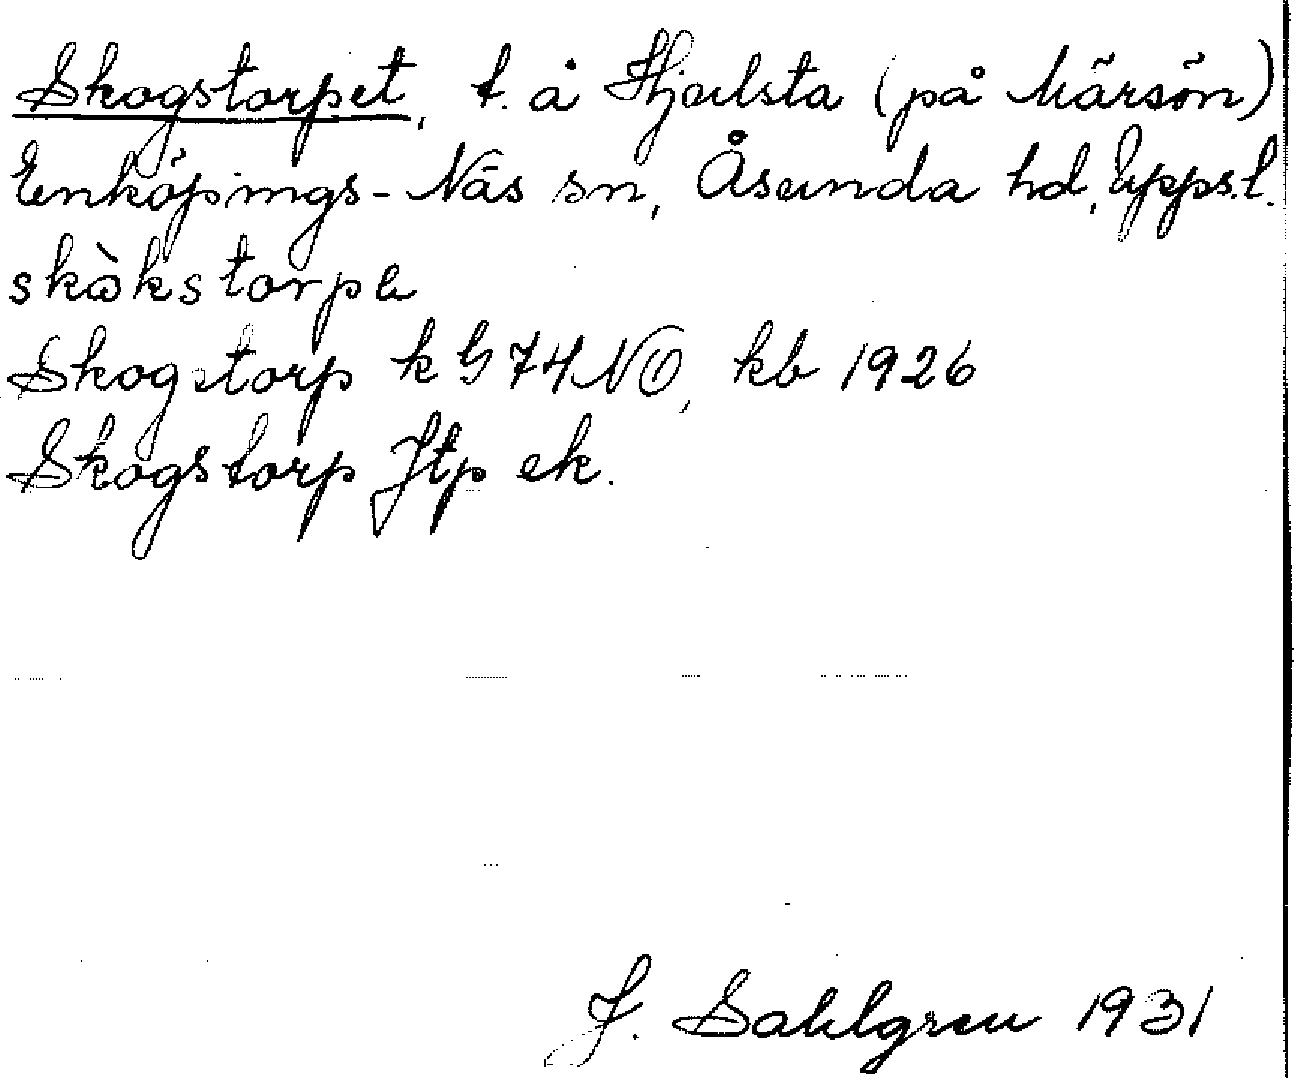 Skogstorpet, t. å Hjulsta (på Märsön)
Enköpings-Näs sn, Åsunda hd, Upps.l.
skòkstorpe
Skogstorp k G 74 NO, kb 1926
Skogstorp Jtp ek.
J. Sahlgren 1931